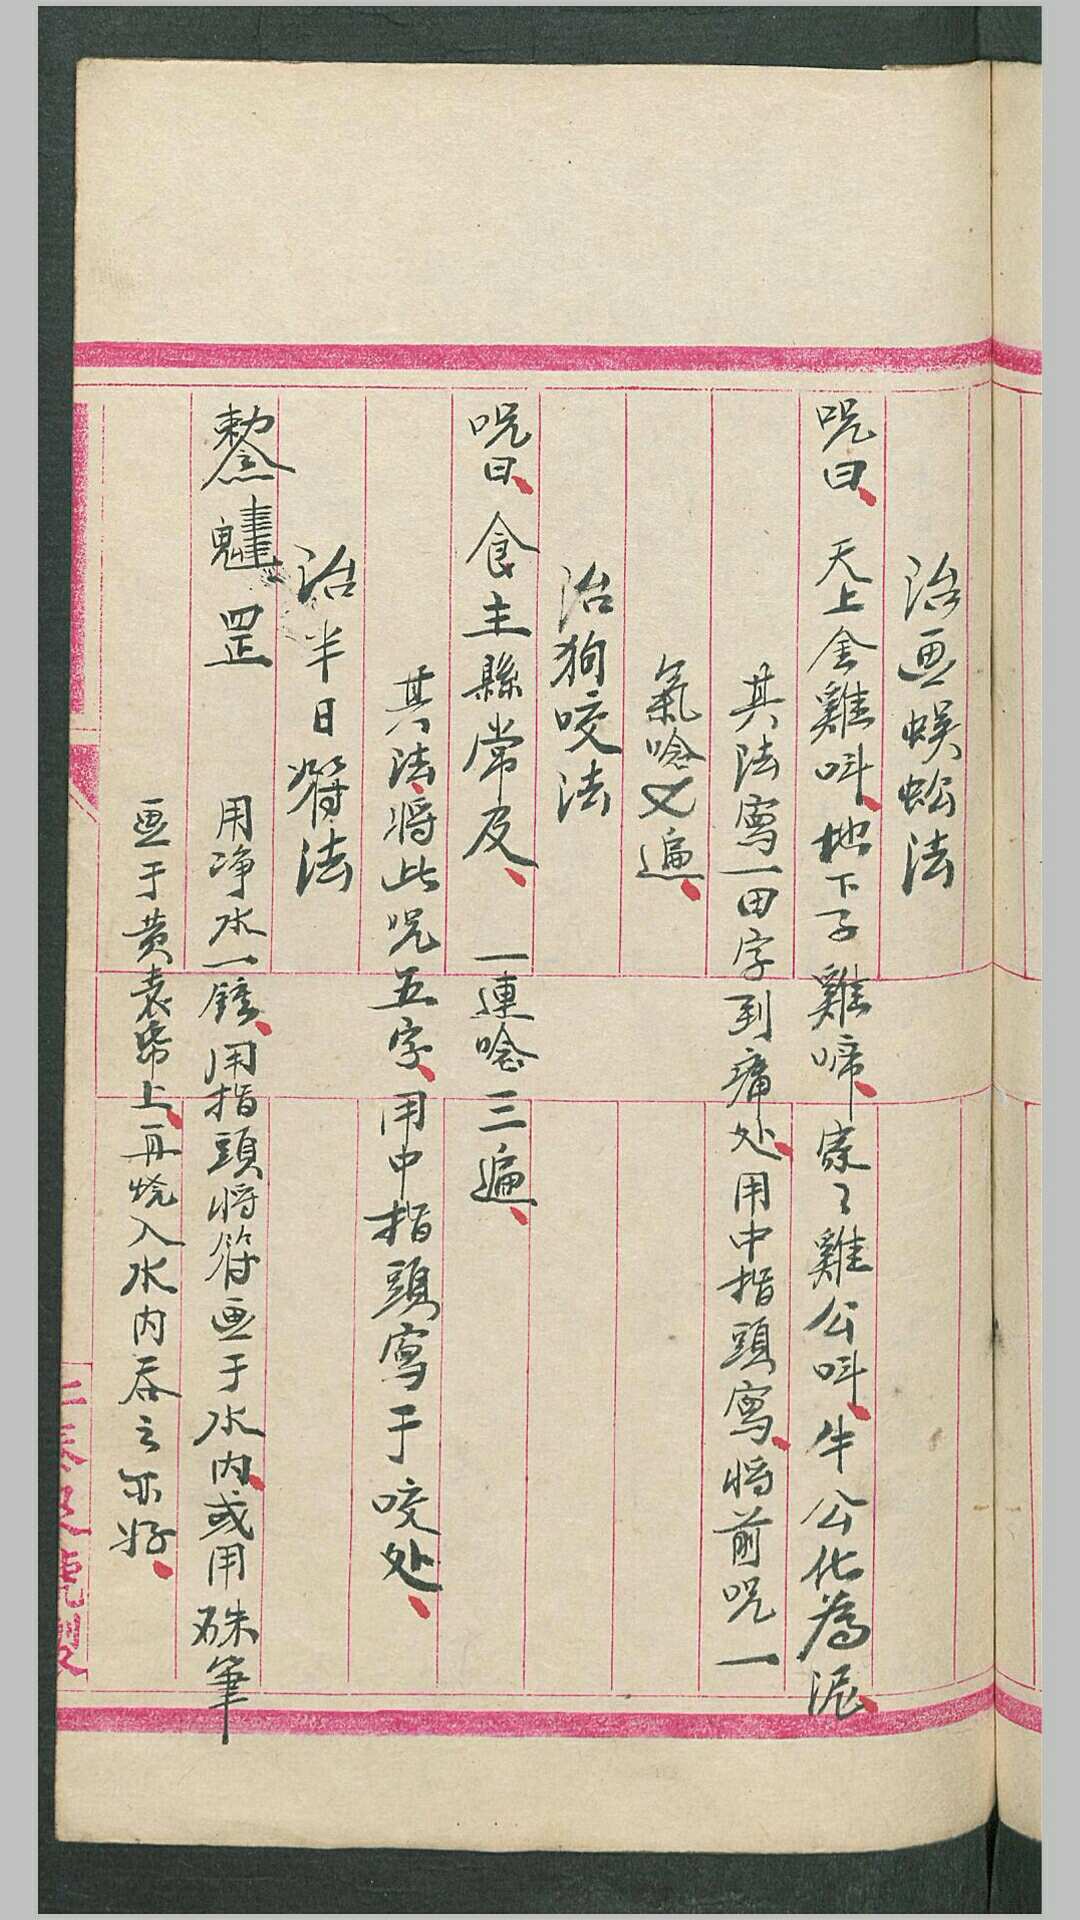 治画蜈蚣法
咒曰、天上金雞叫、地下子雞啼、家々雞公叫、牛公化為泥、
其法寫一田字到痛处、用中指頭寫、將前咒一
氣唸七遍、
治狗咬法
咒曰、食主縣常及、一連唸三遍、
其法、將此咒五字、用中指頭寫于咬处、
治半日 法
罡 用净水一鍾、用指頭將符画于水內、或用硃筆
画于黄表帋上、再烧入水內吞之亦好、